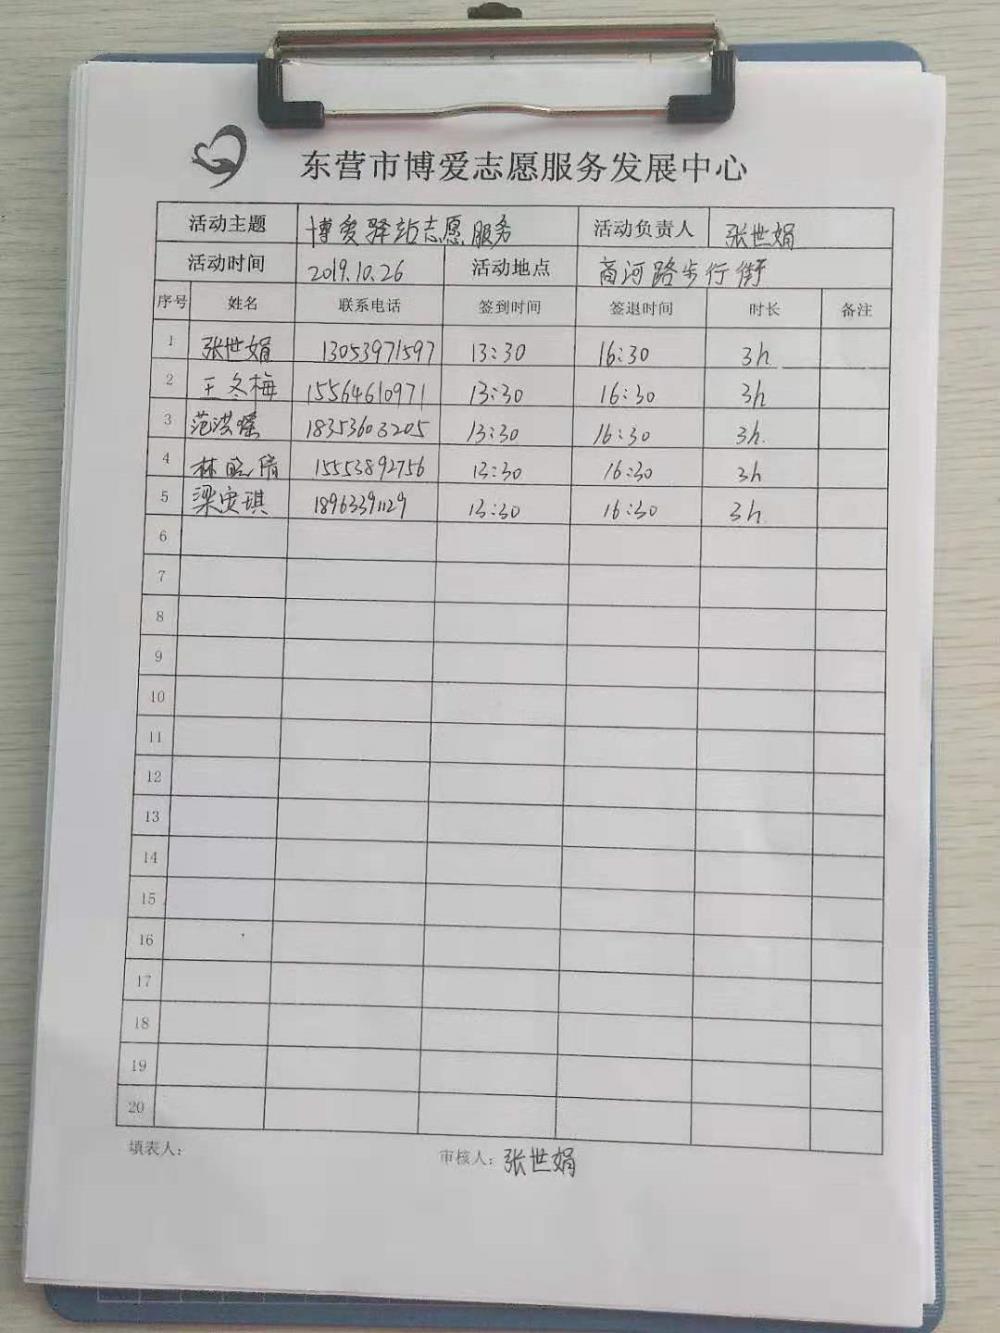 东营市博爱志愿服务发展中心
活动主题 博爱驿站志愿服务 活动负责人 张世娟
活动时间 2019.10.26 活动地点 商河路步行街
序号 姓名 联系电话 签到时间 签退时间 时长 备注
1 张世娟 13053971597 13:30 16:30 3h
2 王冬梅 15564610971 13:30 16:30 3h
3 范洪瑶 18353603205 13:30 16:30 3h.
4 林晓倩 15553892756 13:30 16:30 3h
5 梁安琪 18963391129 13:30 16:30 3h
6
7
8
9
10
11
12
13
14
15
16
17
18
19
20
填表人： 审核人：张世娟